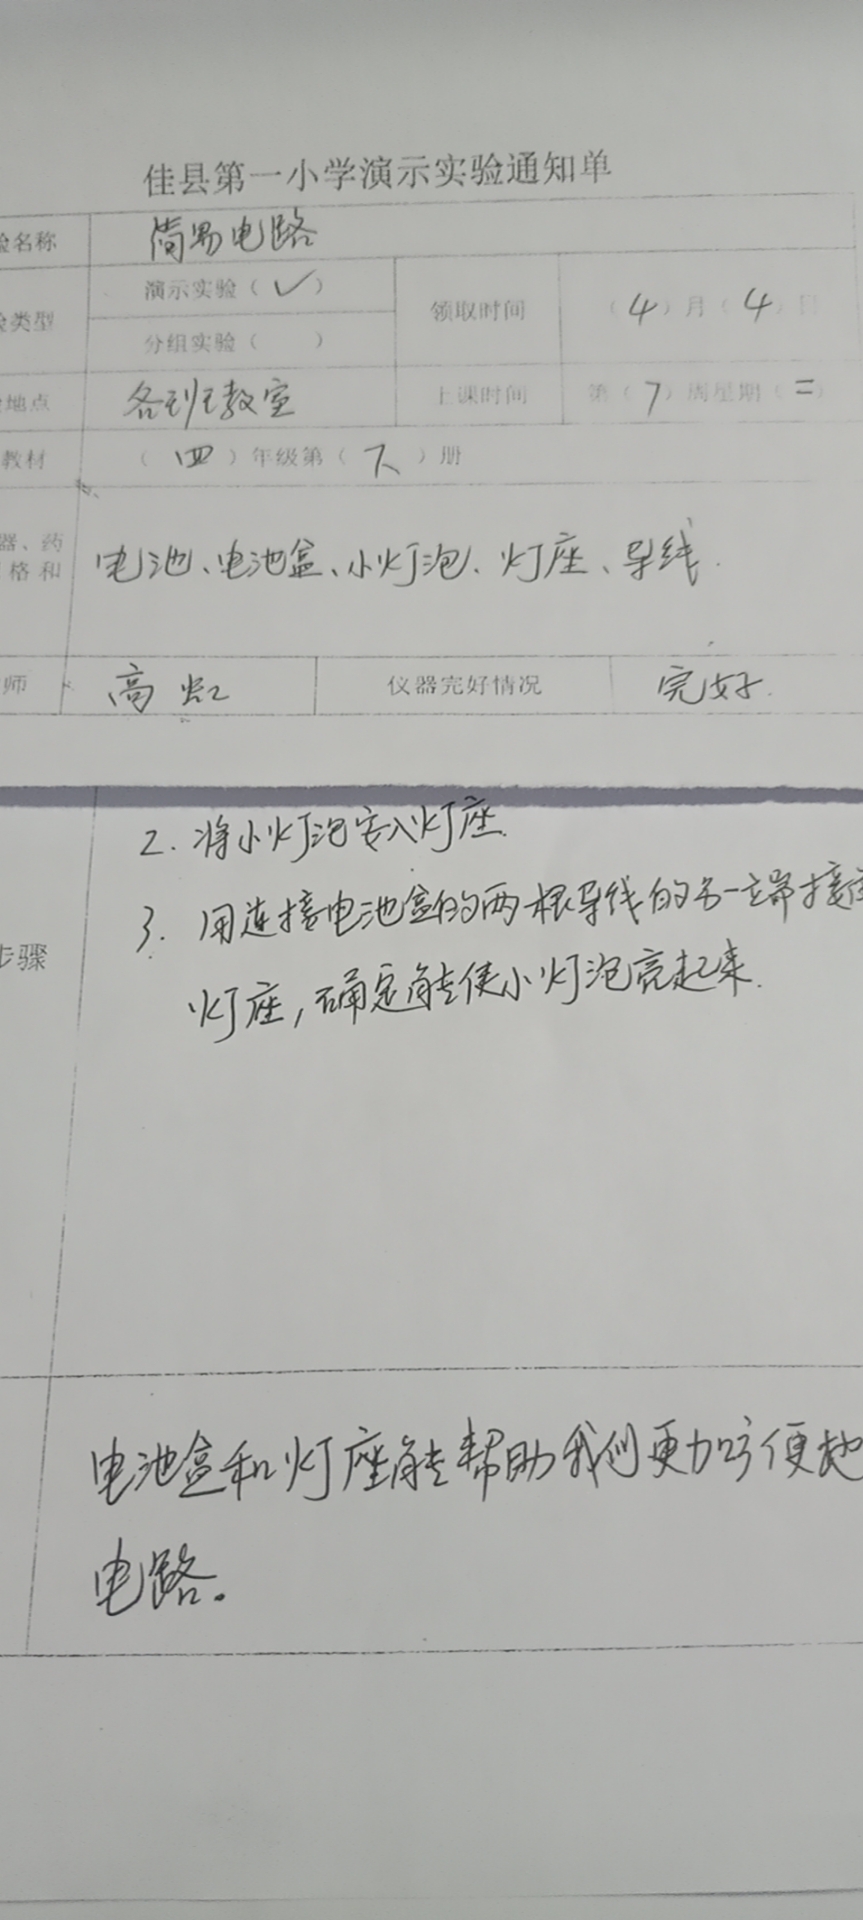 佳县第一小学演示实验通知单
验名称 简易电路
类型 演示实验（✓） 领取时间 （4）月（4）日
分组实验（ ）
地点 各班教室 上课时间 第（7）周星期（二）
教材 （四）年级第（下）册
器、药
格和 电池、电池盒、小灯泡、灯座、导线.
师 高虹 仪器完好情况 完好.
2. 将小灯泡安入灯座.
步骤 3. 用连接电池盒的两根导线的另一端接
灯座，确定能使小灯泡亮起来.
电池盒和灯座能帮助我们更加方便地
电路。